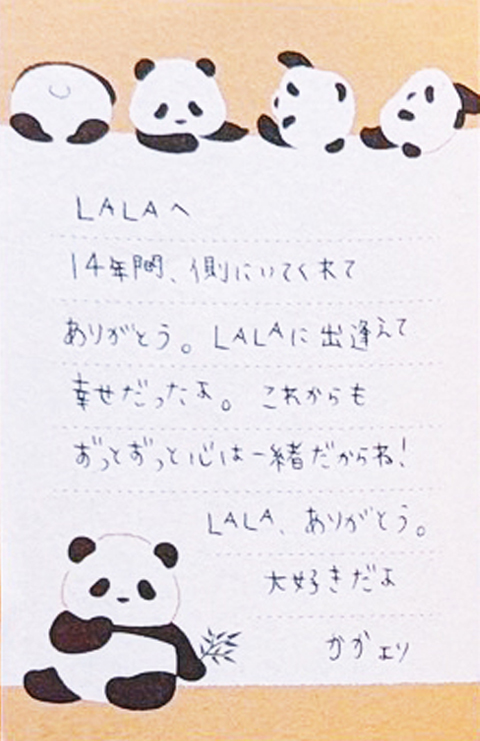 LALAへ
14年間、側にいてくれて
ありがとう。LALAに出逢えて
幸せだったよ。これからも
ずっとずっと心は一緒だからね!
LALA、ありがとう。
大好きだよ
かかより